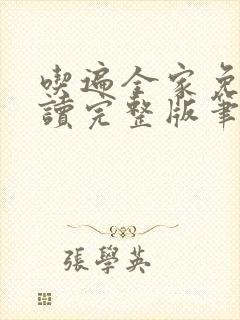 喫遍全家免
讀完整版筆
張學英